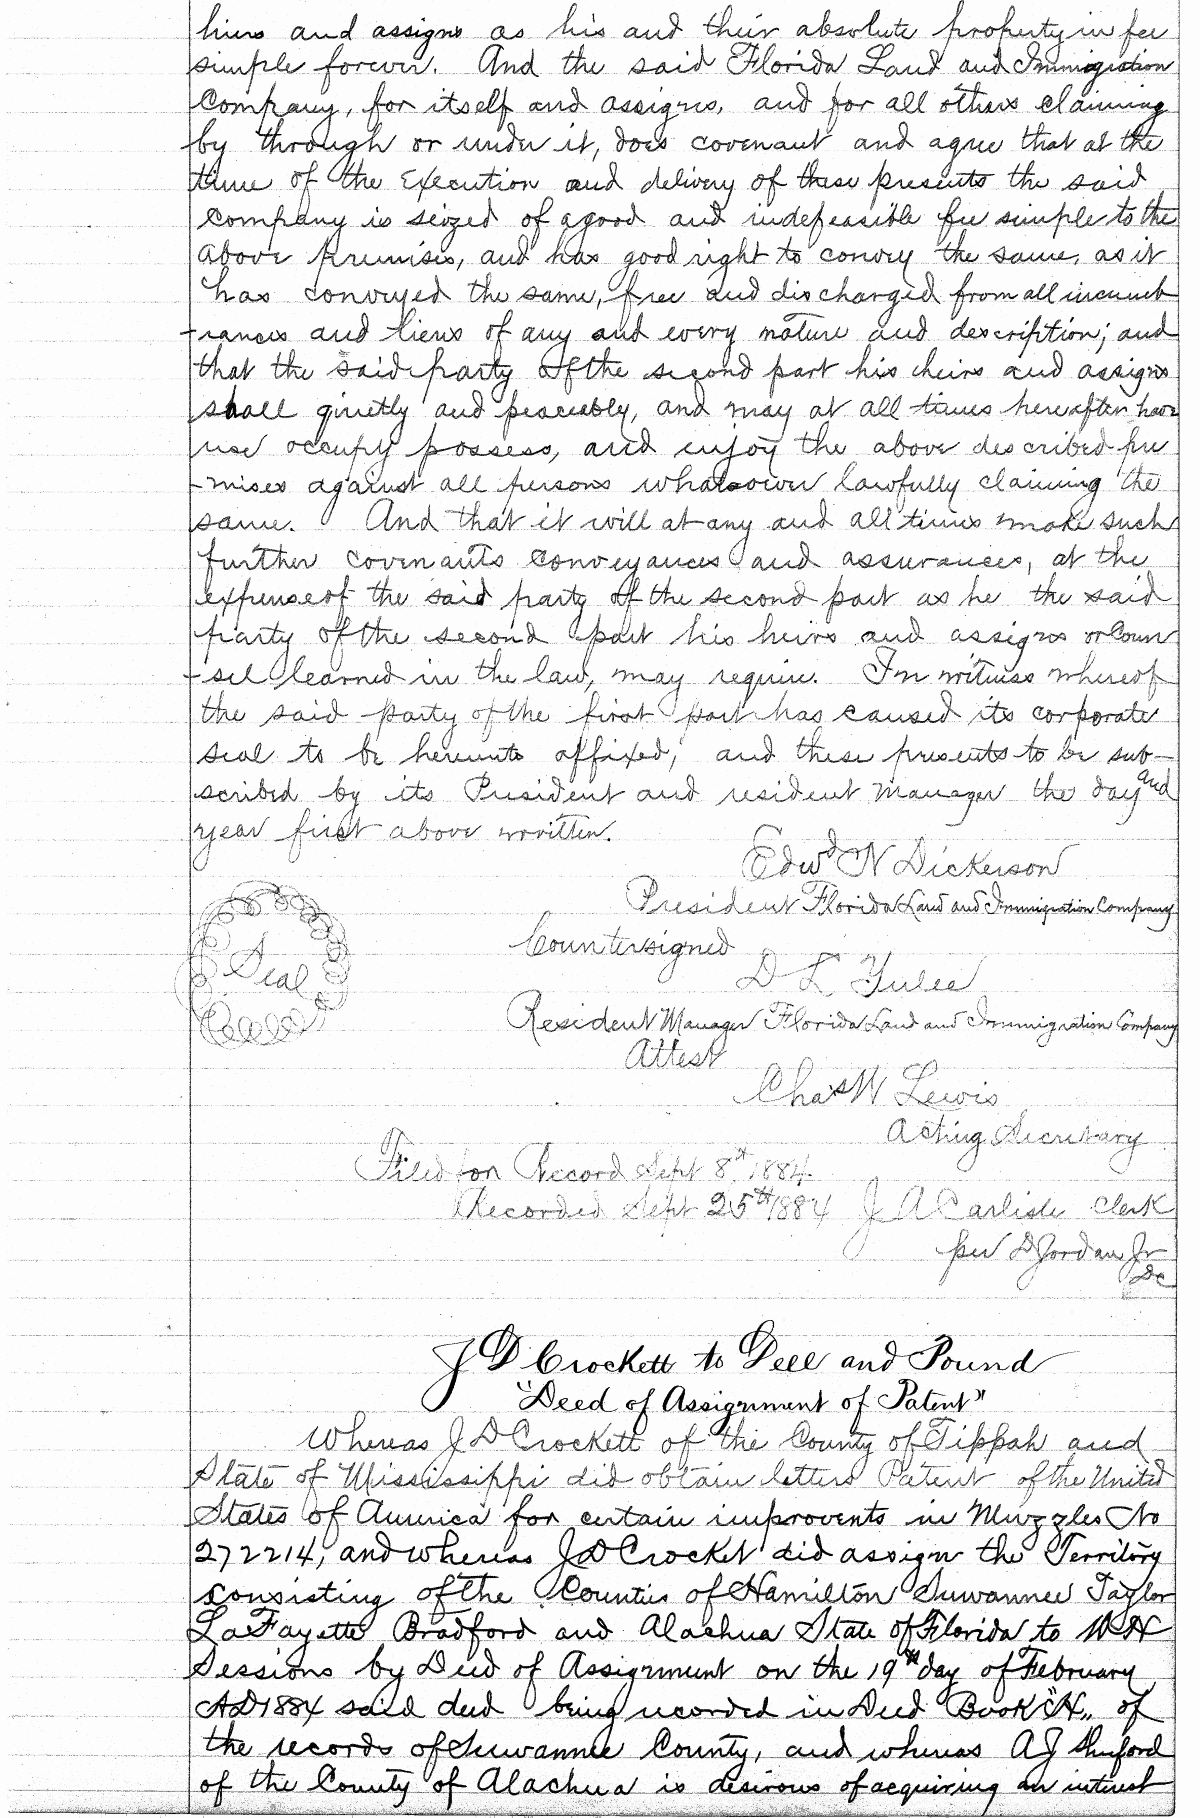 heirs and assigns as his and their absolute property in fee
simple forever. And the said Florida Land and Immigration
Company, for itself and assigns, and for all others claiming
by through or under it, does covenant and agree that at the
time of the Execution and delivery of these presents the said
Company is seized of a good and indefeasible fee simple to the
above premises, and has good right to convey the same, as it
has conveyed the same, free and discharged from all incumb
-rances and liens of any and every nature and description; and
that the said party of the second part his heirs and assigns
shall quietly and peaceably, and may at all times hereafter have
use occupy possess, and enjoy the above described pre
-mises against all persons whatsoever lawfully claiming the
same. And that it will at any and all times make such
further covenants conveyances and assurances, at the
expense of the said party of the second part as he the said
party of the second part his heirs and assigns or Coun
-sel learned in the law, may require. In witness whereof
the said party of the first part has caused its corporate
seal to be hereunto affixed, and these presents to be sub-
scribed by its President and resident Manager the day and
year first above written.
Edwd N Dickerson
President Florida Land and Immigration Company
Countersigned
Seal
D L Yulee
Resident Manager Florida Land and Immigration Company
Attest
Chas W Lewis
Acting Secretary
Filed for Record Sept 8th 1884.
Recorded Sept 25th 1884 J A Carlisle Clerk
per D Jordan Jr
DC
J D Crockett to Dell and Pound
"Deed of Assignment of Patent"
Whereas J D Crockett of the County of Tippah and
State of Mississippi did obtain letters Patent of the United
States of America for certain improvents in Muzzles No
272214, and whereas J D Crocket did assign the Territory
consisting of the Counties of Hamilton Suwannee Taylor
LaFayette Bradford and Alachua State of Florida to W H
Sessions by Deed of Assignment on the 19th day of February
AD 1884 said deed being recorded in Deed Book "H" of
the records of Suwannee County, and whereas A J Shuford
of the County of Alachua is desirous of acquiring an interest